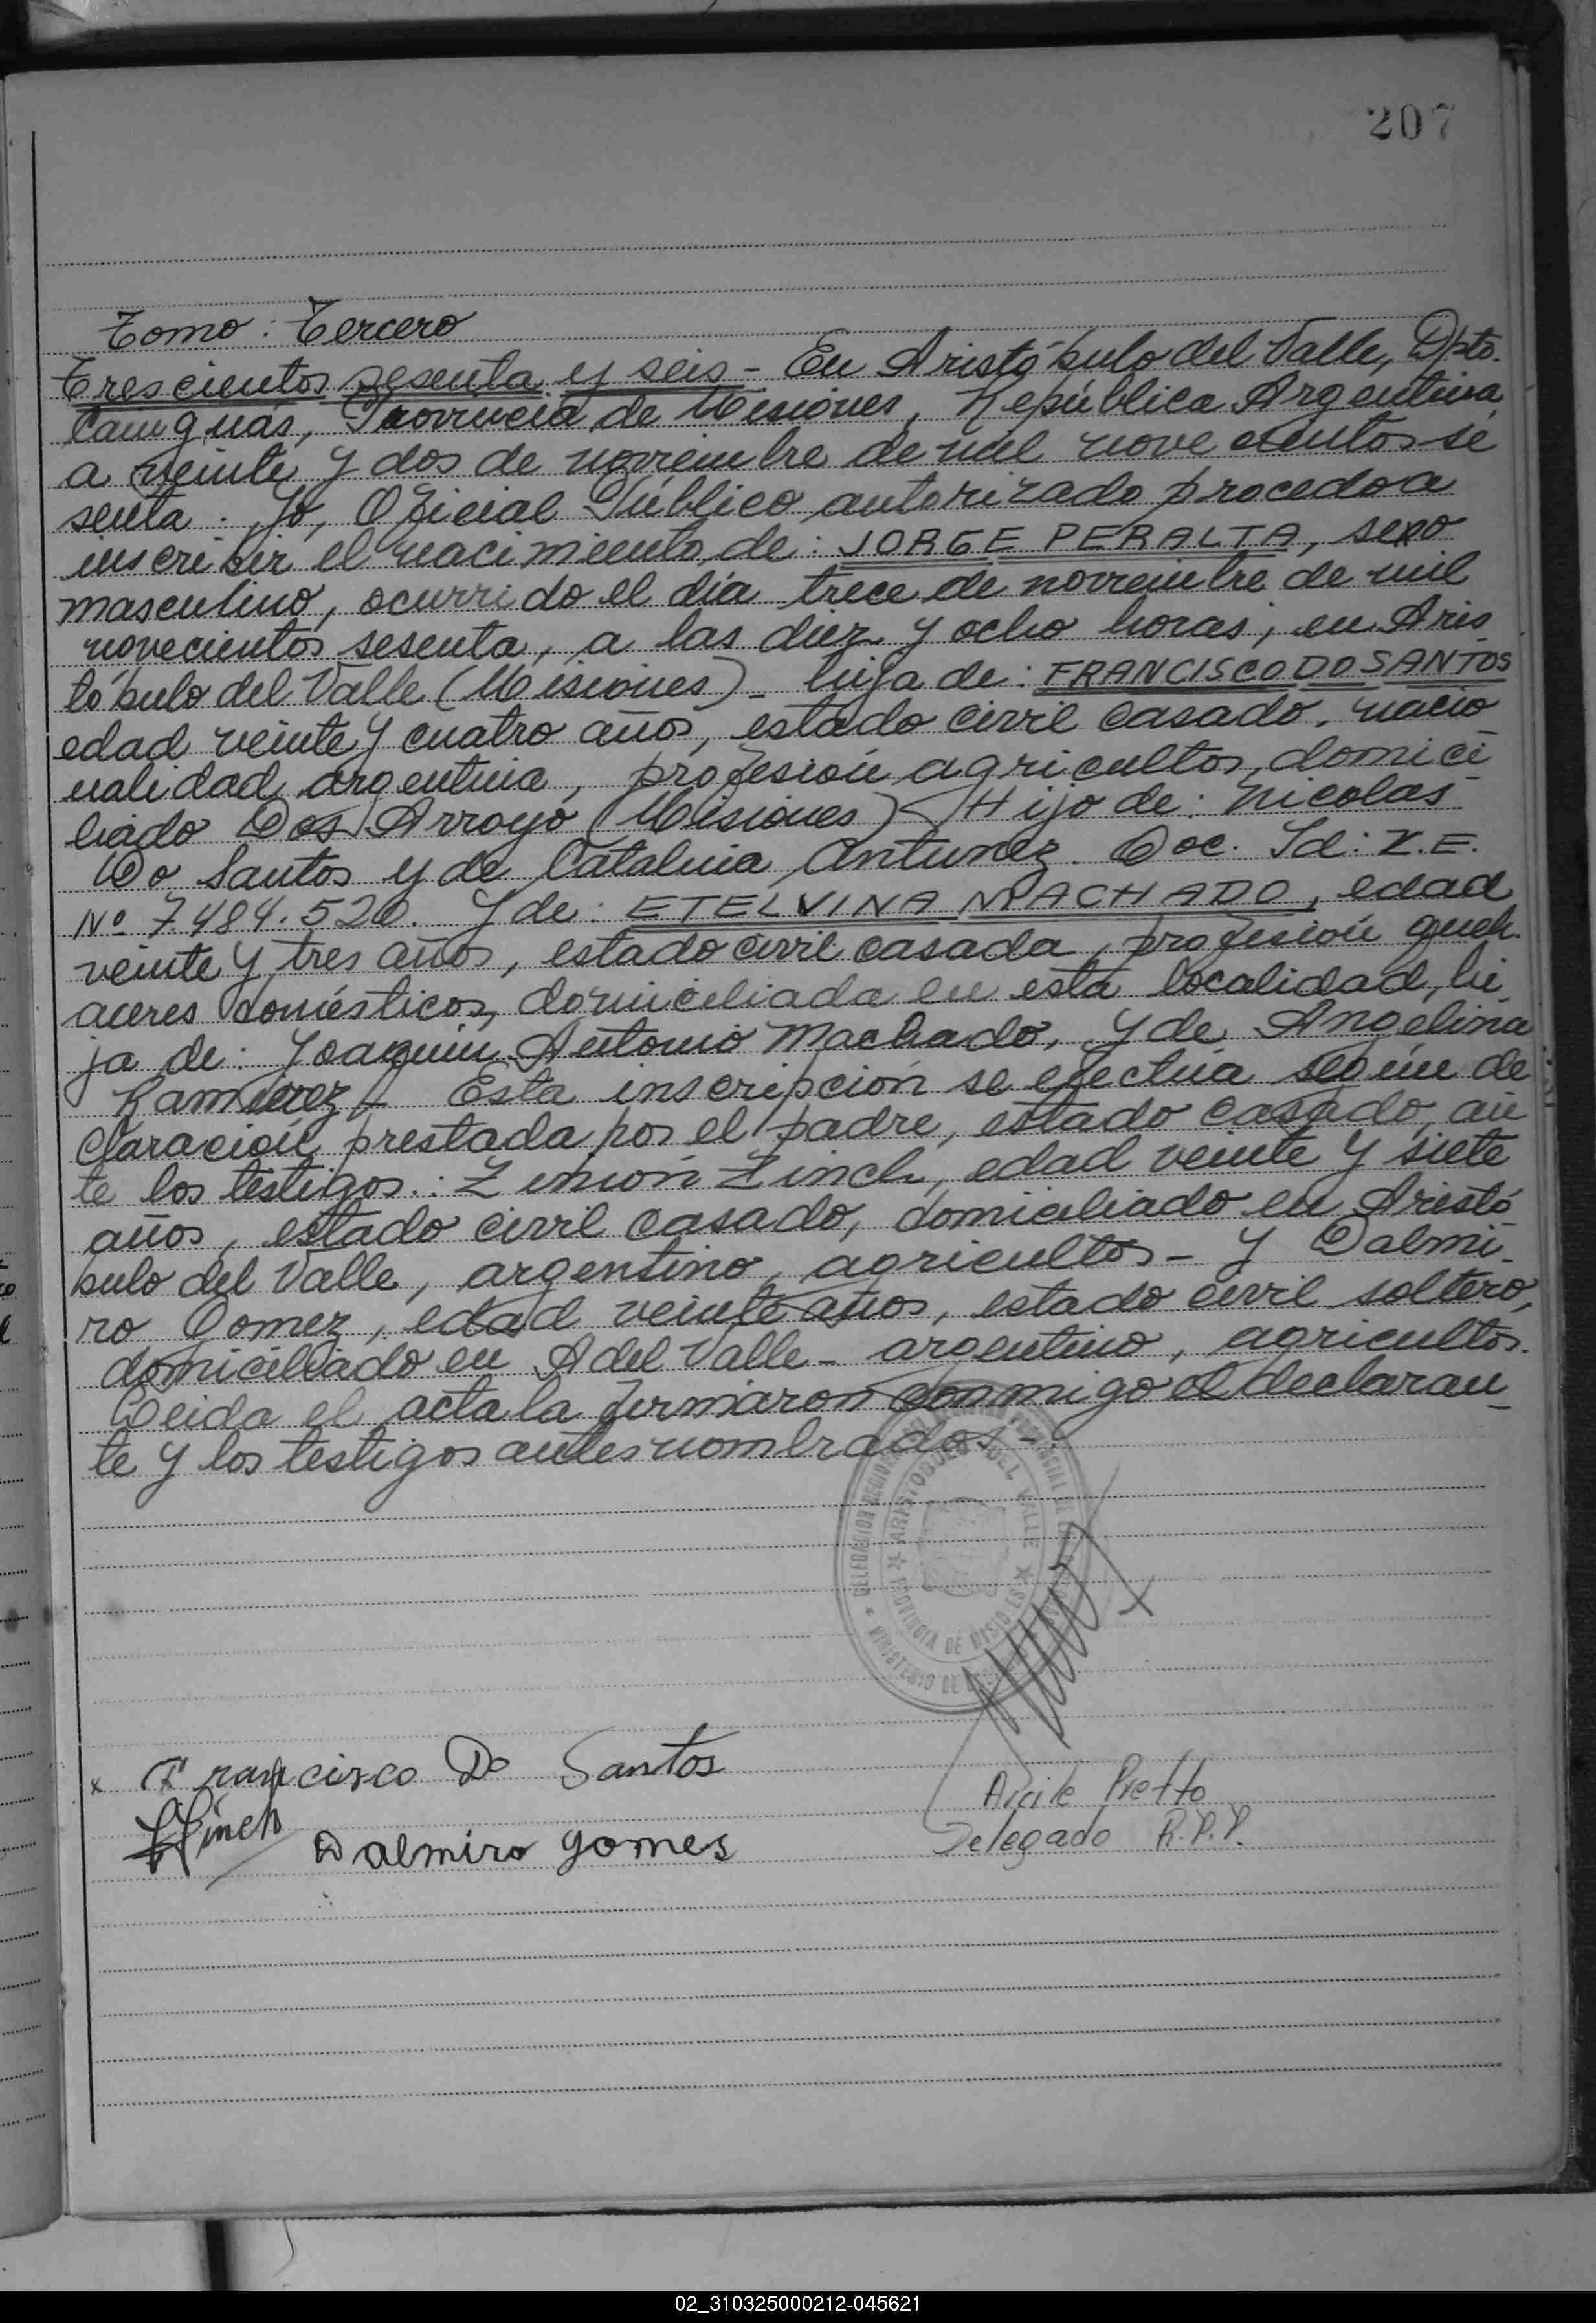 207
Tomo: Tercero
Trescientos sesenta y seis - En Aristóbulo del Valle, Dpto.
Cainguás, Provincia de Misiones, República Argentina,
a veinte y dos de noviembre de mil novecientos se
senta. Yo, Oficial Público autorizado procedo a
inscribir el nacimiento de: JORGE PERALTA, sexo
masculino, ocurrido el día trece de noviembre de mil
novecientos sesenta, a las diez y ocho horas, en Aris
tóbulo del Valle (Misiones) - hija de: FRANCISCO DO SANTOS
edad veinte y cuatro años, estado civil casado, nacio
nalidad argentina, profesión agricultor, domici
liado Dos Arroyo (Misiones) - Hijo de: Nicolas
Do Santos y de Catalina Antunez. Doc. Id: L.E.
Nº 7.484.520. Y de: ETELVINA MACHADO, edad
veinte y tres años, estado civil casada, profesión queh.
aceres domésticos, domiciliada en esta localidad, hi
ja de: Joaquin Antonio Machado, y de Angelina
Ramirez - Esta inscripción se efectúa según de
claración prestada por el padre, estado casado, an
te los testigos: Zenión Zinch, edad veinte y siete
años, estado civil casado, domiciliado en Aristó
bulo del Valle, argentino, agricultor - y Dalmi-
ro Gomez, edad veinte años, estado civil soltero,
domiciliado en A del Valle - argentino, agricultor.
Leida el acta la firmaron conmigo el declaran-
te y los testigos antes nombrados -
DELEGACION PROVINCIAL DE
ARISTOBULO DEL VALLE
PROVINCIA DE MISIONES
MINISTERIO DE
x Francisco Do Santos
Zinch Dalmiro Gomes
Pretto
Delegado R.P.P.
02_310325000212-045621